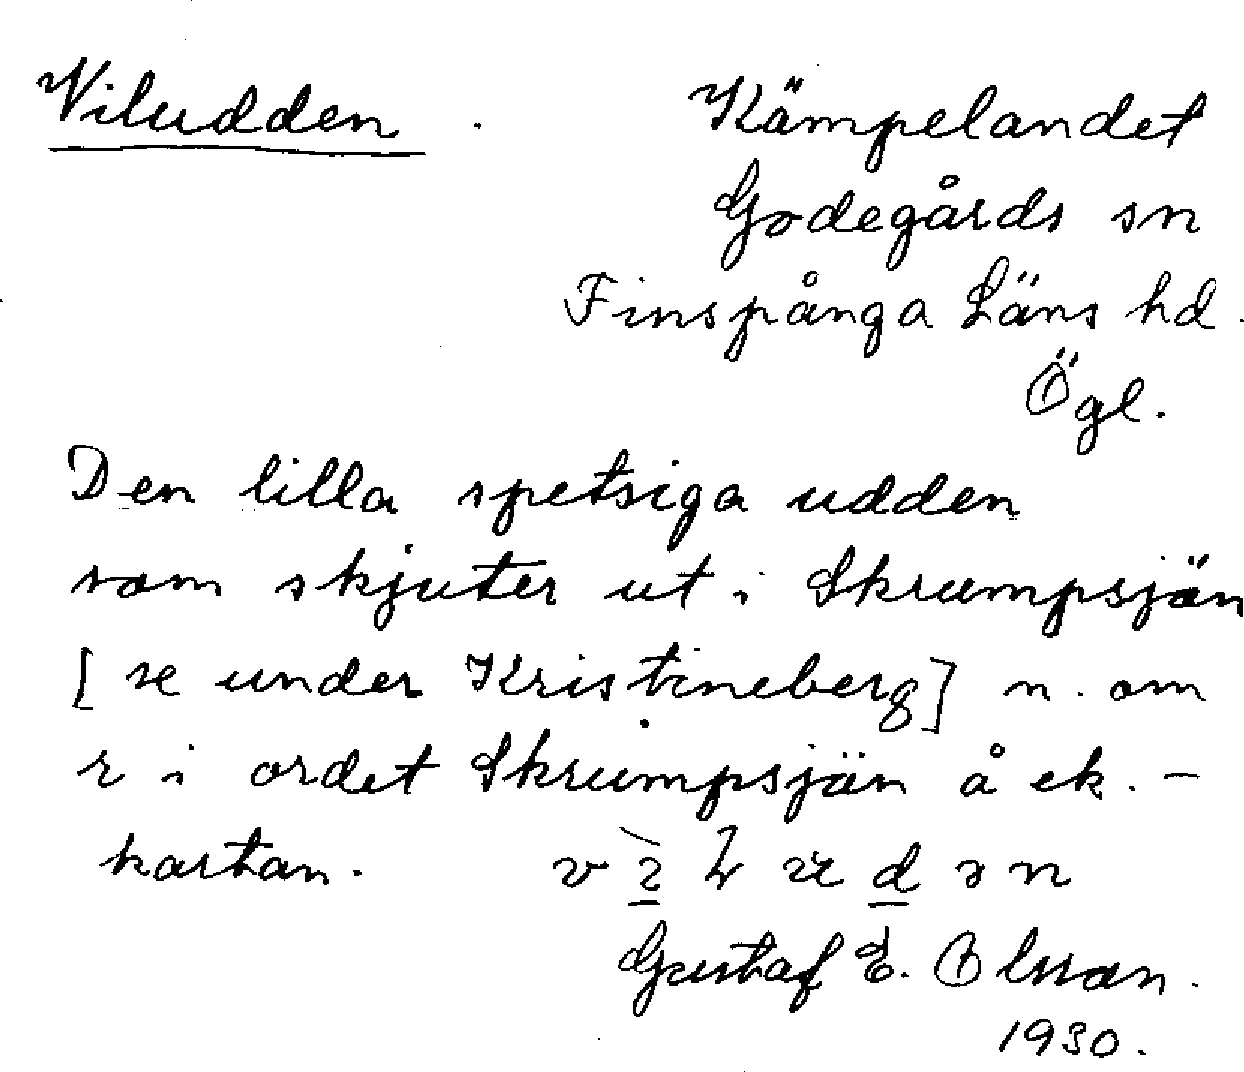 Viludden.
Kämpelandet
Godegårds sn
Finspånga Läns hd.
Ögl.
Den lilla spetsiga udden
som skjuter ut i Skrumpsjön
[se under Kristineberg] n. om
r i ordet Skrumpsjön å ek.-
kartan.
Gustaf E. Olsson.
1930.